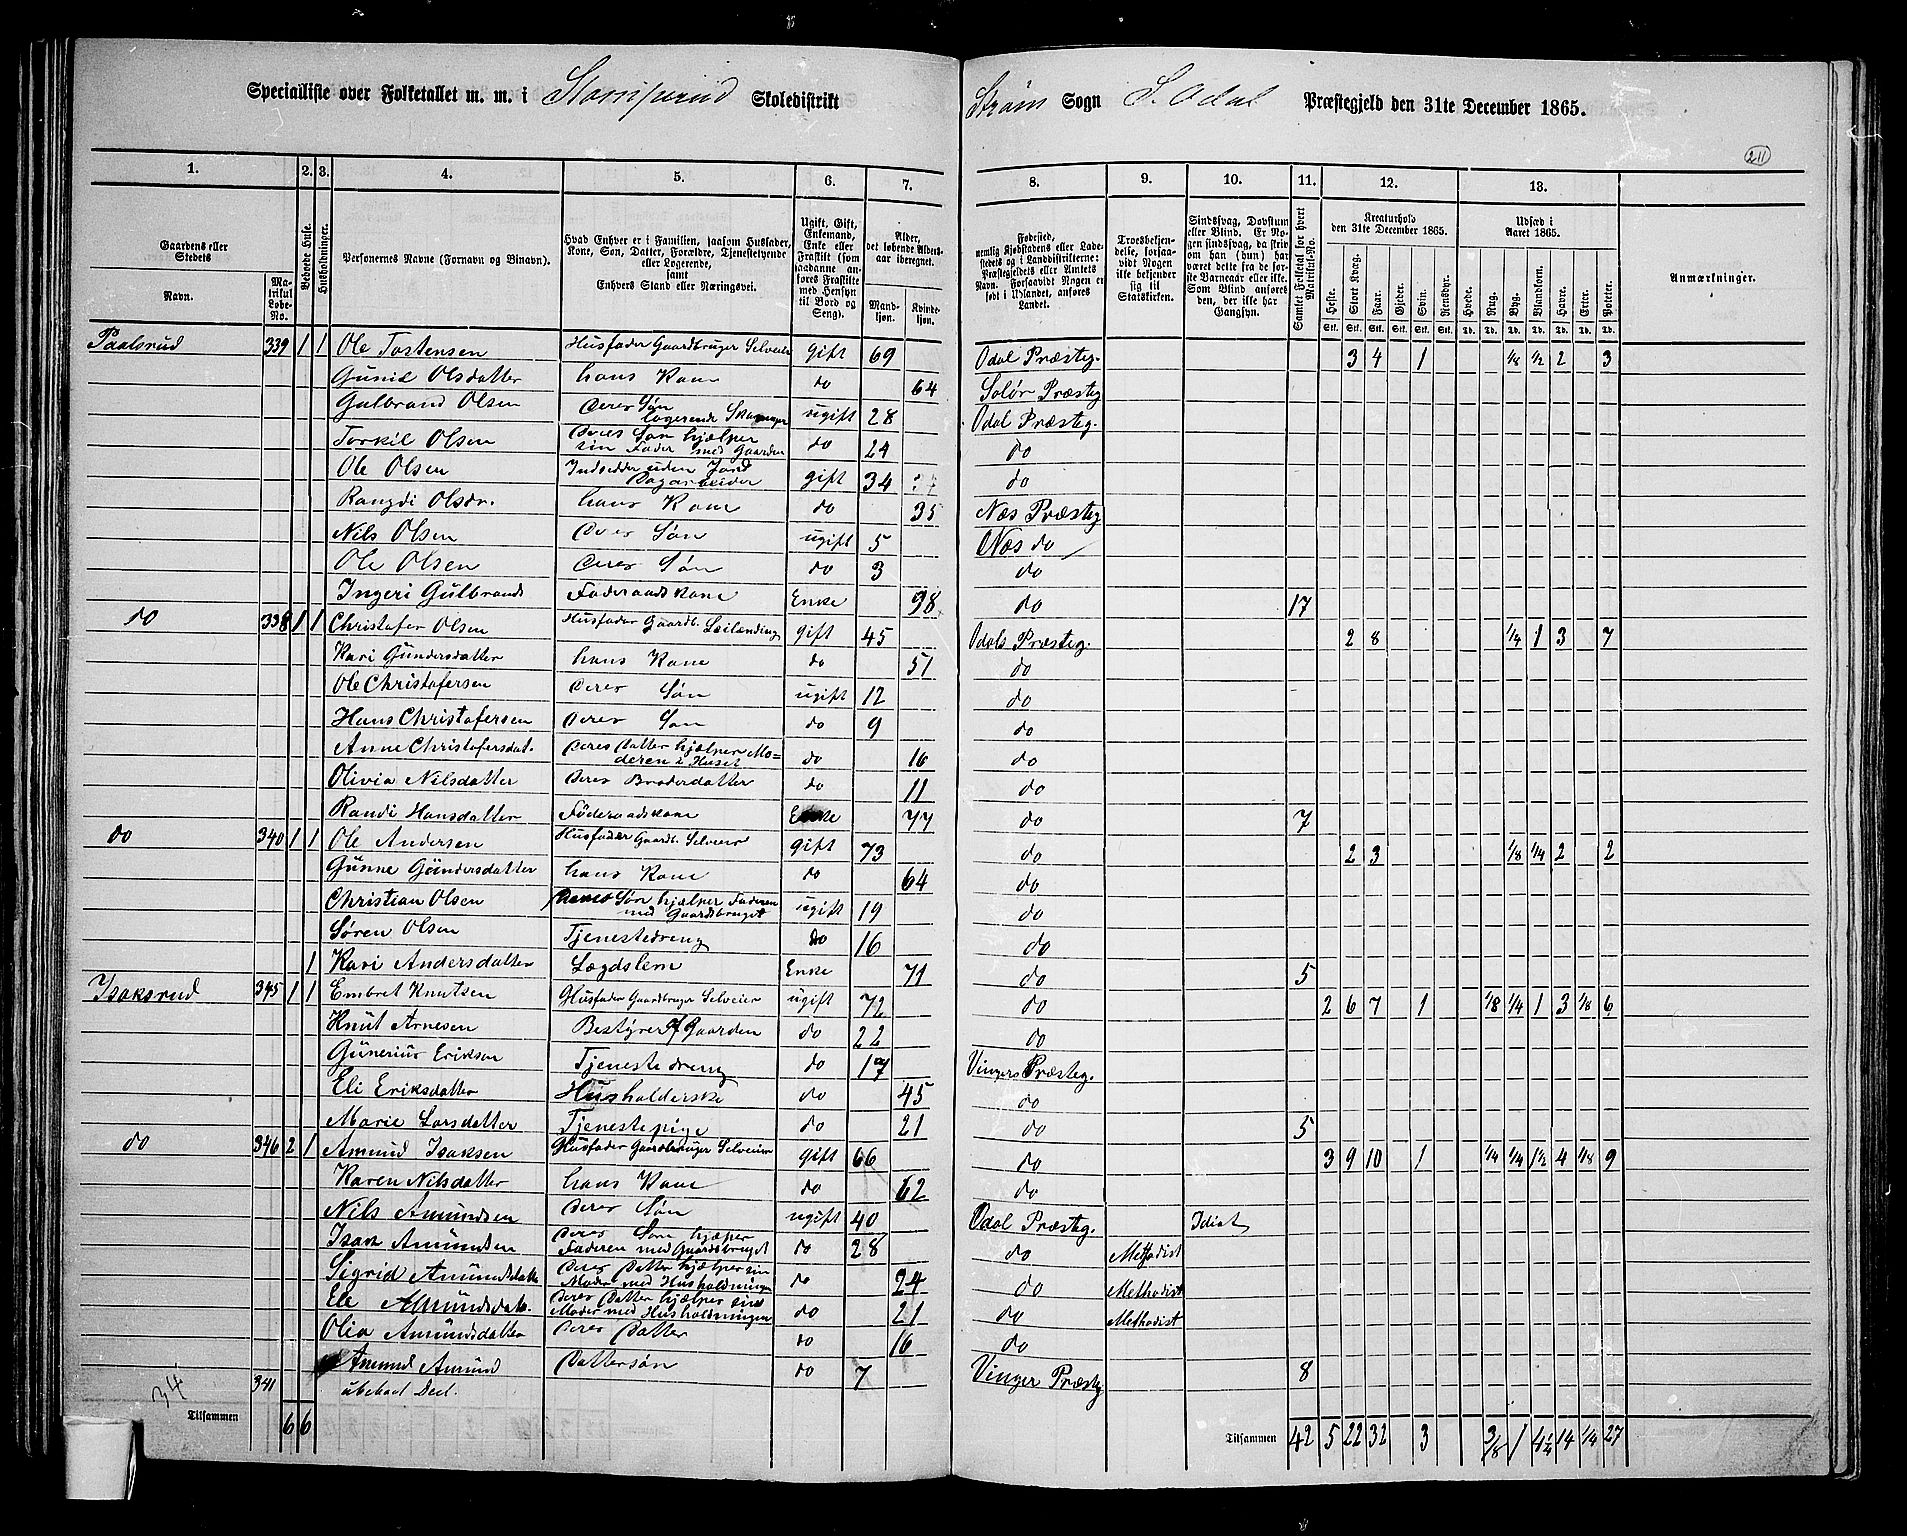 Specialliste over Folketallet m. m. i Stomperud Skoledistrikt Strøm Sogn S. Odal Præstegjeld den 31te December 1865.
211
1. 2. 3. 4. 5. 6. 7. 8. 9. 10. 11. 12. 13.
Gaardens eller Stedets
Navn. Matrikul Løbe-No.
Beboede Huse.
Husholdninger.
Personernes Navne (Fornavn og Binavn).
Hvad Enhver er i Familien, saasom Husfader, Kone, Søn, Datter, Forældre, Tjenestetyende eller Logerende, samt Enhvers Stand eller Næringsvei.
Ugift, Gift, Enkemand, Enke eller Fraskilt (som saadanne anføres Fraskilte med Hensyn til Bord og Seng).
Alder, det løbende Aldersaar iberegnet.
Mandkjøn. Kvindekjøn.
Fødested, nemlig Kjøbstadens eller Ladestedets og i Landdistrikterne: Præstegjeldets eller Amtets Navn. Forsaavidt Nogen er født i Udlandet, anføres Landet.
Troesbekjendelse, forsaavidt Nogen ikke bekjender sig til Statskirken.
Sindssvag, Døvstum eller Blind. Er Nogen sindssvag, da skriv om han (hun) har været dette fra de første Barneaar eller ikke. Som Blind anføres den, der ikke har Gangsyn.
Samlet Folketal for hvert Matrikul-No.
Kreaturhold den 31te December 1865.
Heste. Stort Kvæg. Faar. Gjeder. Svin. Rensdyr.
Udsæd i Aaret 1865.
Hvede. Rug. Byg. Blandkorn. Havre. Erter. Poteter.
Anmærkninger.
Paalsrud 339 1 1 Ole Tostensen Husfader Gaardbruger Selveier gift 69 Odal Præsteg. 3 4 1 1/8 1/2 2 3
Gunild Olsdatter hans Kone do 64 Solør Præsteg
Gulbrand Olsen Deres Søn logerende ugift 28 Odal Præsteg.
Torkil Olsen Deres Søn hjælper sin Fader med Gaarden do 24 do
Ole Olsen Inderst uden Jord Dagarbeider gift 34 do
Rangdi Olsdr. hans Kone do 35 Næs Præsteg
Nils Olsen Deres Søn ugift 5 Næs do
Ole Olsen Deres Søn do 3 do
Ingeri Gulbrands Føderaadskone Enke 98 do 17
do 338 1 1 Christofer Olsen Husfader Gaardb. Leilænding gift 45 Odals Præsteg. 2 8 1/4 1 3 7
Kari Gundersdatter hans Kone do 51 do
Ole Christofersen Deres Søn ugift 12 do
Hans Christofersen Deres Søn do 9 do
Anne Christofersdat. Deres Datter hjælper Moderen i Huset do 16 do
Olivia Nilsdatter Deres Broderdatter do 11 do
Randi Hansdatter Føderaadskone Enke 77 do 7
do 340 1 1 Ole Andersen Husfader Gaardb. Selveier gift 73 do 2 3 1/8 1/4 2 2
Gunne Gundersdatter hans Kone do 64 do
Christian Olsen Deres Søn hjælper Faderen med Gaardsbruget ugift 19 do
Søren Olsen Tjenestedreng do 16 do
1 Kari Andersdatter Lægdslem Enke 71 do 5
Isaksrud 345 1 1 Embret Knutsen Husfader Gaardbruger Selveier ugift 72 do 2 6 7 1 1/8 1/4 1 3 1/8 6
Knut Arnesen Bestyrer af Gaarden do 22 do
Gunerius Eriksen Tjenestedreng do 17 Vingers Præsteg.
Eli Eriksdatter Husholderske do 45 do
Marie Larsdatter Tjenestepige do 21 do 5
do 346 2 1 Amund Isaksen Husfader Gaardbruger Selveier gift 66 do 3 9 10 1 1/4 1/4 1 1/2 4 1/8 9
Karen Nilsdatter hans Kone do 62 do
Nils Amundsen Deres Søn ugift 40 Odal Præsteg. Idiot
Isak Amundsen Deres Søn hjælper Faderen med Gaardsbruget do 28 do Methodist
Sigrid Amundsdatte Deres Datter hjælper sin Moder med Husholdningen do 24 do Methodist
Eli Amundsdatr. Deres Datter hjælper sin Moder med Husholdningen do 21 do Methodist
Olia Amundsdatter Deres Datter do 16 do
Amund Amund Dattersøn do 7 Vinger Præsteg 8
341 ubeboet Deel.
34
Tilsammen 6 6
Tilsammen 42 5 22 32 3 3/8 1 4 1/4 14 1/4 27